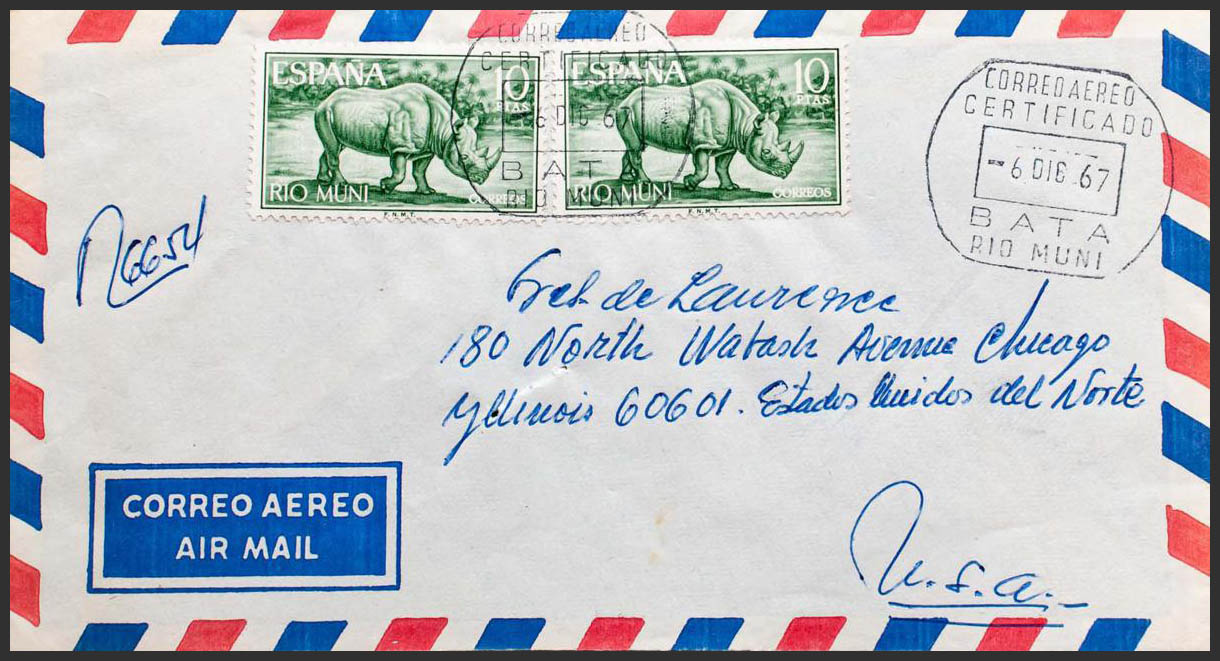 CORREO AEREO
CERTIFICADO
-6 DIC 67
BATA
RIO MUNI
ESPAÑA 10 PTAS
RIO MUNI CORREOS
F.N.M.T.
ESPAÑA 10 PTAS
RIO MUNI CORREOS
F.N.M.T.
CORREO AEREO
CERTIFICADO
-6 DIC 67
BATA
RIO MUNI
6654
de Laurence
180 North Watash Avenue Chicago
Yllinois 60601. Estados Unidos del Norte
CORREO AEREO
AIR MAIL
U.S.A.